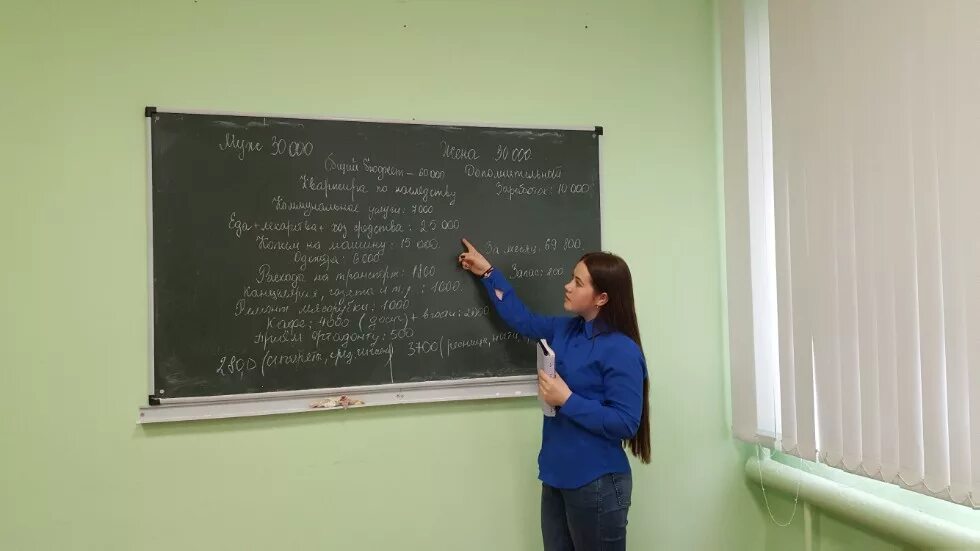 Муж 30 000
Жена 30 000.
Общий бюджет – 60 000
Дополнительный
Заработок: 10 000
Квартира по наследству
Коммунальные услуги: 7000
Еда + лекарства + хоз средства: 25 000
Копим на машину: 15 000.
За месяц: 69 800.
Одежда: 6000
Запас: 200
Расходы на транспорт: 1800
Канцелярия, газета и т.д.: 1000.
Ремонт мясорубки: 1000
Кафе: 4000 (дост) + в гости: 2000
Приём ортодонту: 500
2800 (интернет, 3700 (ресницы,